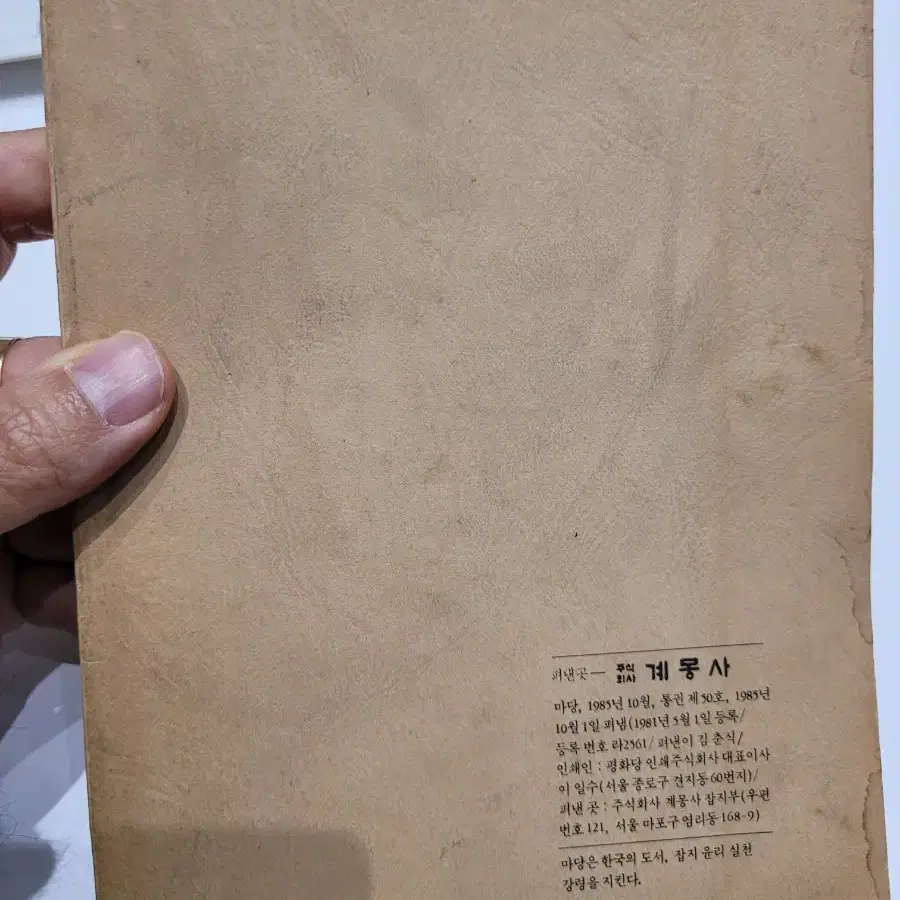 펴낸곳— 주식회사 계몽사
마당, 1985년 10월, 통권 제50호, 1985년
10월 1일 펴냄(1981년 5월 1일 등록/
등록 번호 라2561/ 펴낸이 김 춘식/
인쇄인 : 평화당 인쇄주식회사 대표이사
이 일수(서울 종로구 견지동 60번지)/
펴낸 곳 : 주식회사 계몽사 잡지부(우편
번호 121, 서울 마포구 염리동 168-9)
마당은 한국의 도서, 잡지 윤리 실천
강령을 지킨다.